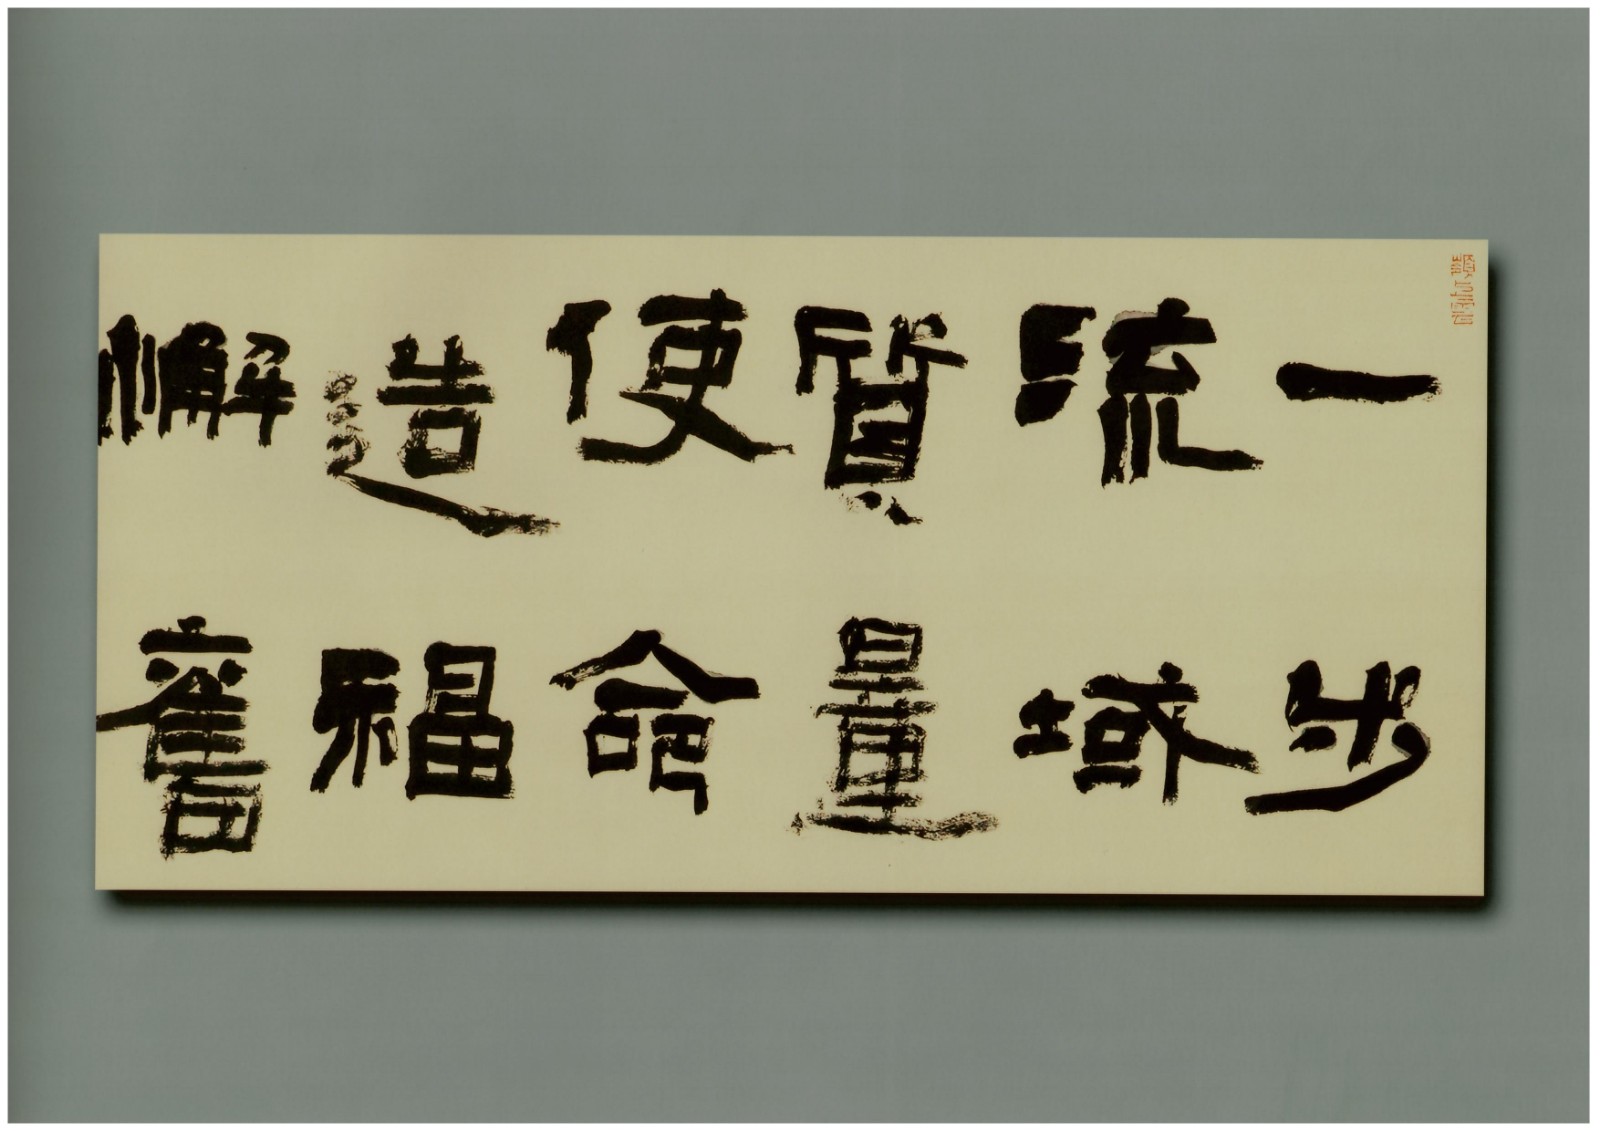 一步
流域
質量
使命
造福